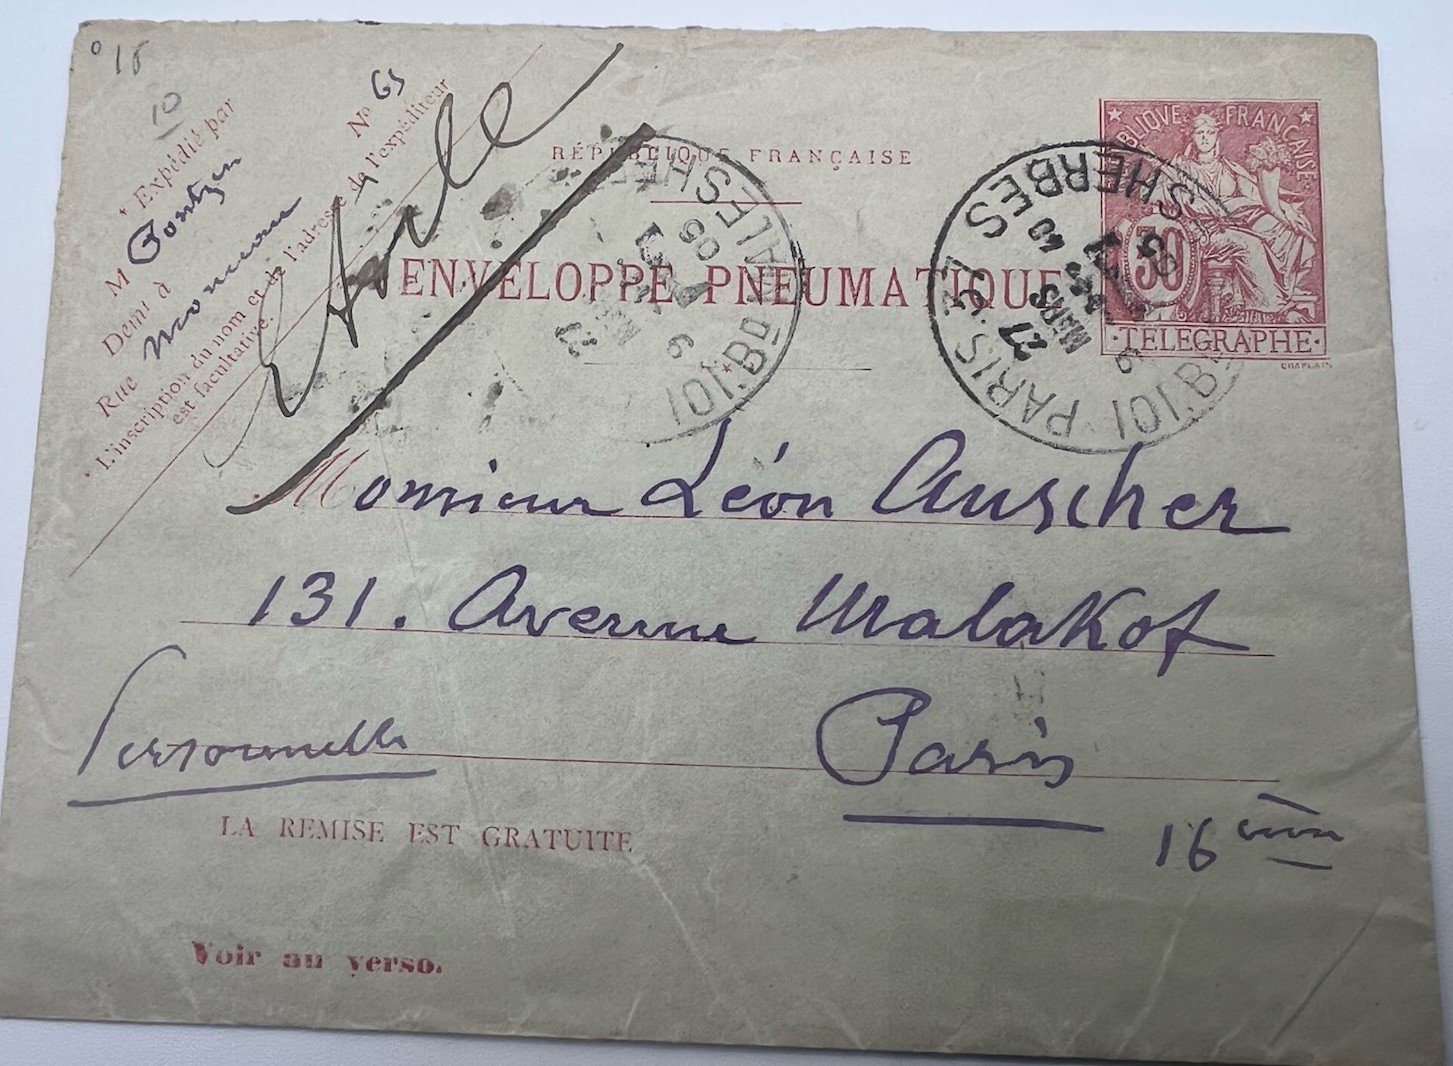 0 15
10
Expédié par
M
Demt à
Rue
Nº 63
L'inscription du nom et de l'adresse de l'expéditeur
est facultative.
RÉPUBLIQUE FRANÇAISE
ENVELOPPE PNEUMATIQUE
RÉPUBLIQUE FRANÇAISE
30
TELEGRAPHE
CHAPLAIN
PARIS. 13. 101. BD MALESHERBES
27
MARS
05
101. BD MALESHERBES
05
Monsieur Léon Auscher
131. Avenue Malakof
Paris
16 ème
Personnelle
LA REMISE EST GRATUITE
Voir au verso.